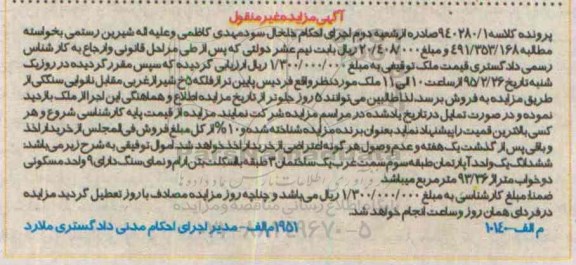 آگهی مزایده غیر منقول
پرونده کلاسه ۹۴۰۲۸۰/۱ صادره از شعبه دوم اجرای احکام دخالخال سود مهدی کاظمی وعلیه اله شیرین رستمی بخواسته
مطالبه ۴۹۱/۳۵۳/۱۶۸ و مبلغ ۲۰/۴۰۸/۰۰۰ ریال بابت نیم عشر دولتی که پس از طی مراحل قانونی وارجاع به کارشناس
رسمی دادگستری قیمت ملک توقیفی به مبلغ ۱/۳۰۰/۰۰۰/۰۰۰ ریال ارزیابی گردیده که سپس مقرر گردیده در روز یک
شنبه تاریخ ۹۵/۲/۲۶ از ساعت ۱۰ الی ۱۱ ملک مورد نظر واقع فردیس پایین تر از فلکه ۵ خ شیراز غربی مقابل نانوایی سنگکی از
طریق مزایده به فروش برسد، لذا طالبین می توانند ۵ روز جلوتر از تاریخ مزایده اطلاع و هماهنگی این اجرا از ملک بازدید
نموده و در صورت تمایل در تاریخ یاد شده در مراسم مزایده شرکت نمایند. مزایده از قیمت پایه کارشناسی شروع و هر
کسی بالاترین قیمت را پیشنهاد نماید بعنوان برنده مزایده شناخته شده و ۱۰% از کل مبلغ فروش فی المجلس از خریدار اخذ
و باقی پس از گذشت یک هفته و عدم وصول هر گونه اعتراضی از خریدار اخذ خواهد شد. اموال توقیفی به شرح زیر می باشد:
ششدانگ یک واحد آپارتمان طبقه سوم سمت غرب یک ساختمان ۳ طبقه با اسکلت بتن آرام و نمای سنگ دارای ۹ واحد مسکونی
دو خواب متراژ ۹۳/۳۶ متر مربع میباشد
ضمنا مبلغ کارشناسی به مبلغ ۱/۳۰۰/۰۰۰/۰۰۰ ریال می باشد و چنانچه روز مزایده مصادف با روز تعطیل گردید مزایده
در فردای همان روز و ساعت انجام خواهد شد.
م الف-۱۰۱۴۰ ۱۹۵۱م الف- مدیر اجرای احکام مدنی دادگستری ملارد